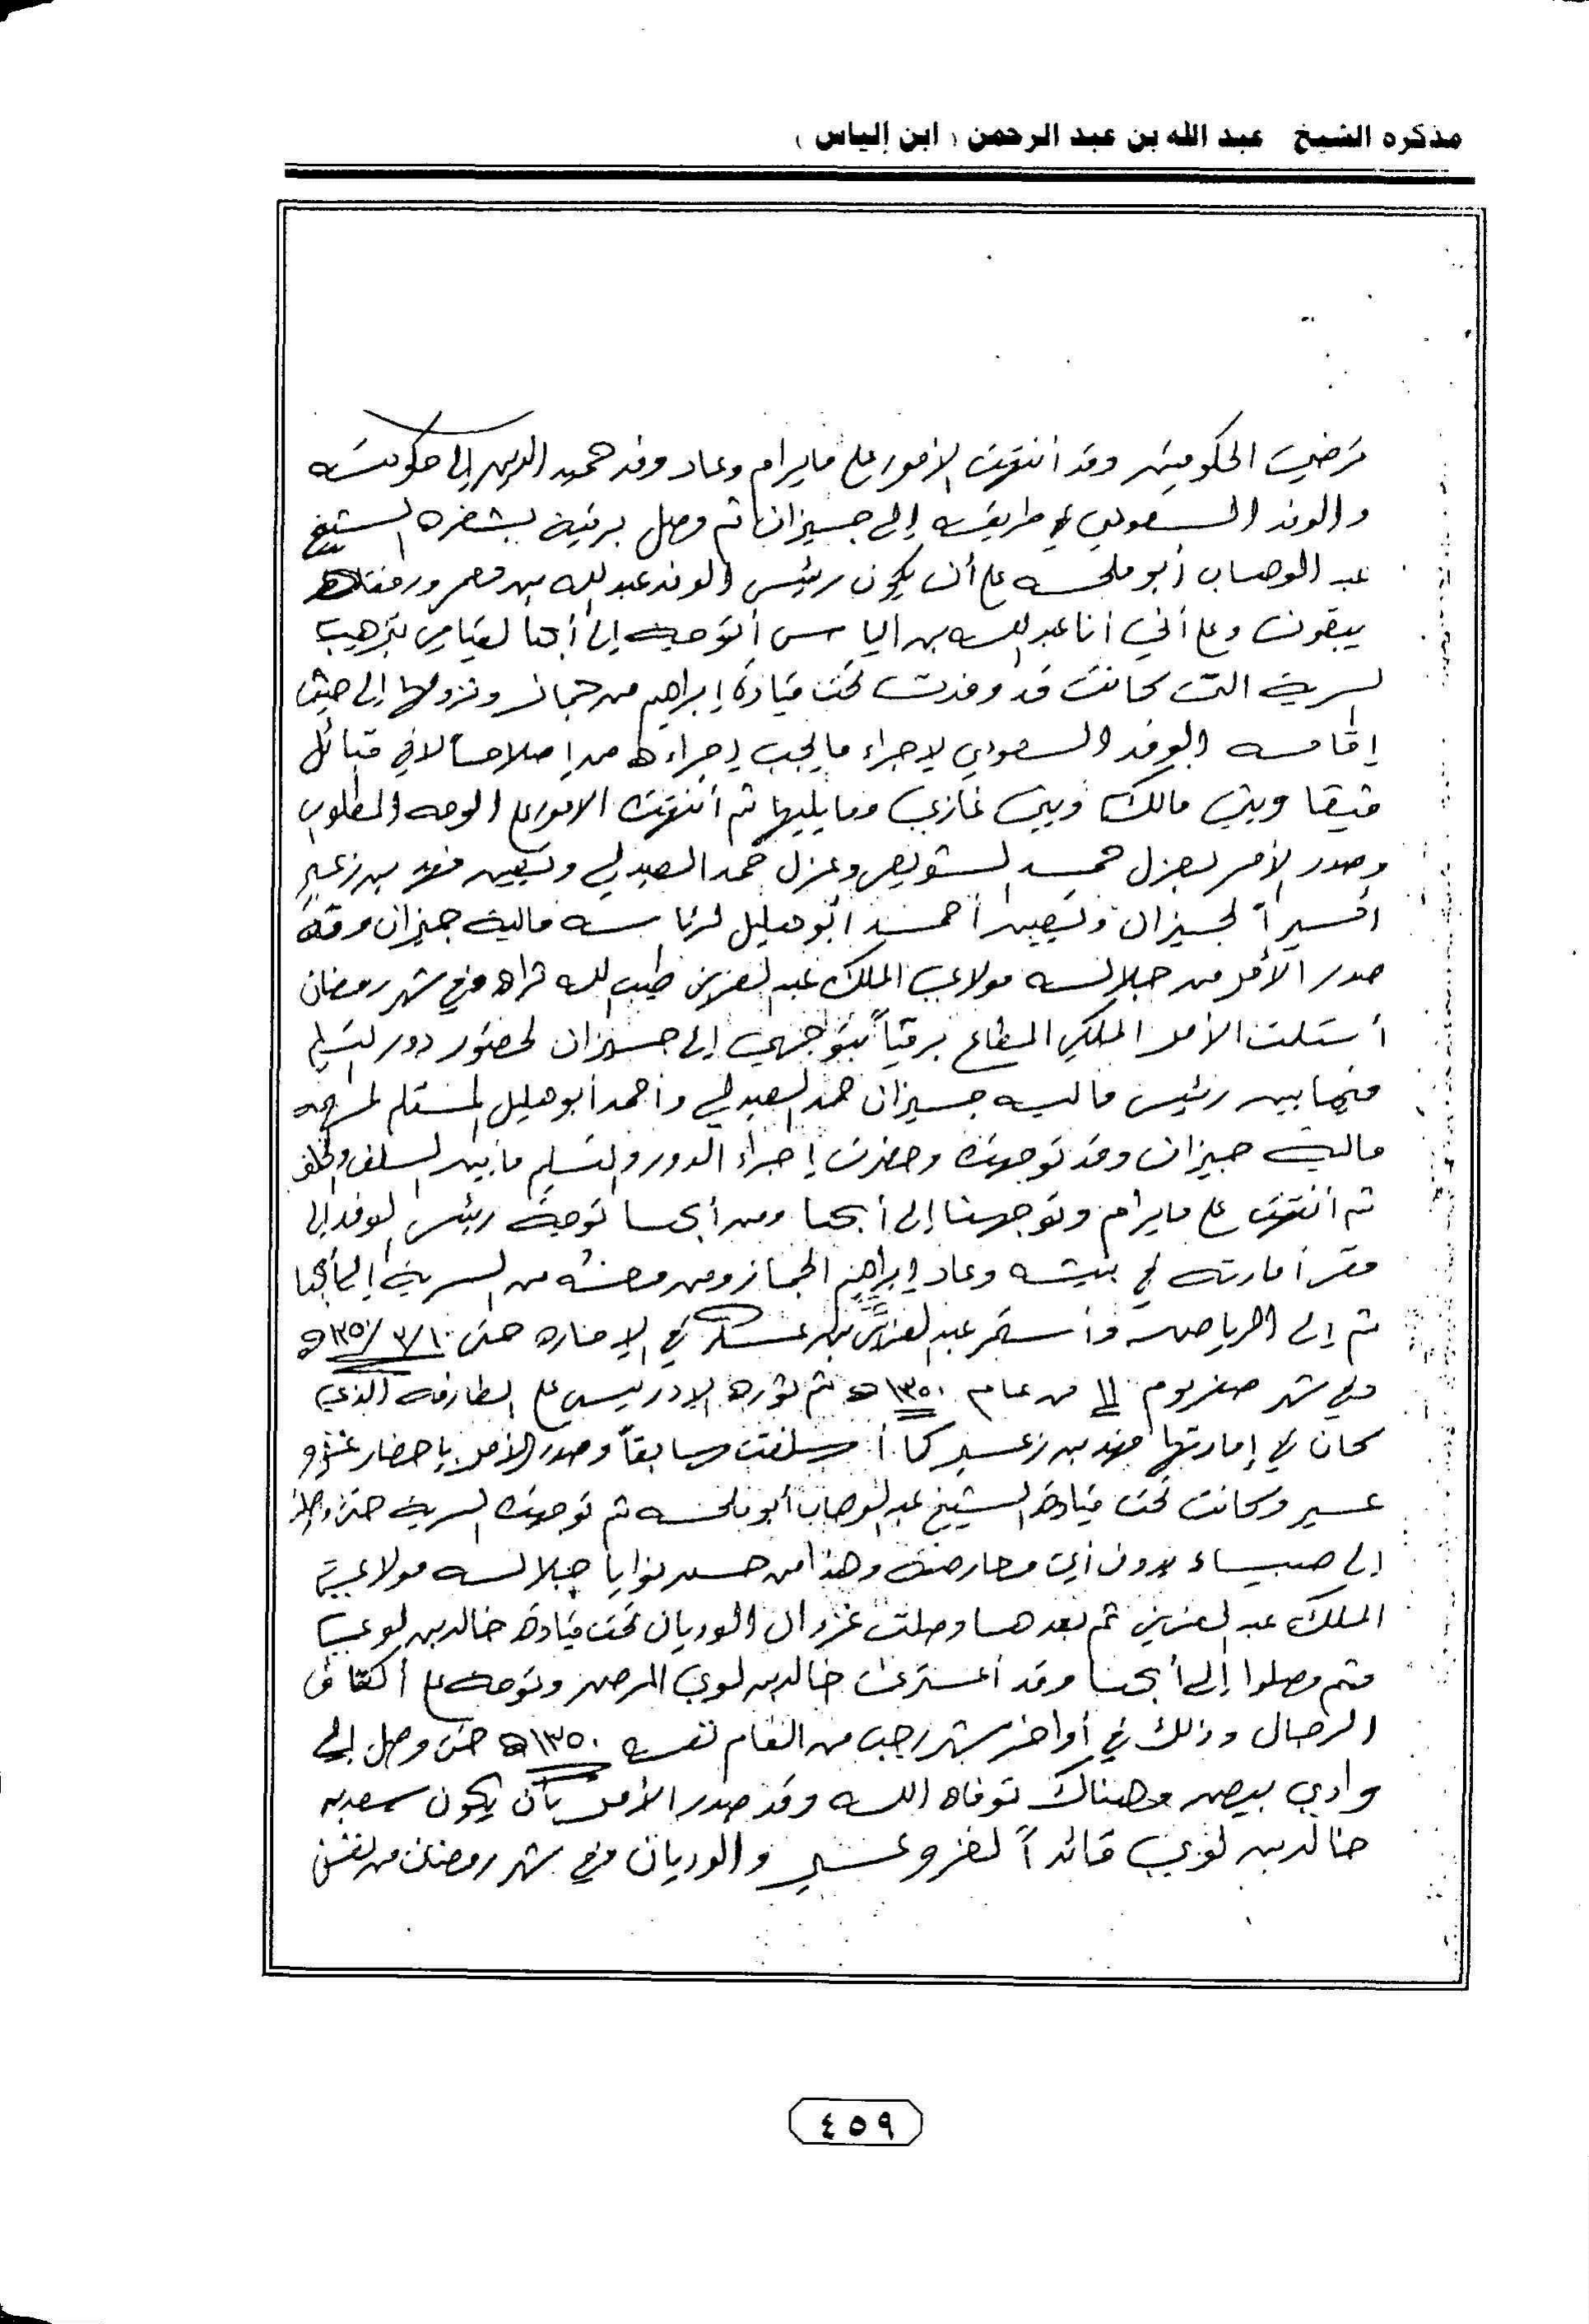 مذكره الشيخ عبد الله بن عبد الرحمن ( ابن إلياس )
ترضي الحكومتين وقد أنتهت الأمور على مايرام وعاد وفد حميد الدين إلى حكومته
والوفد السعودي في طريقه إلى جيزان ثم وصل برقية بشفره الشيخ
عبد الوهاب أبو ملحه على أن يكون رئيس الوفد عبد الله بن معمر ورفقته
يبقون وعلى أني أنا عبد الله بن الياس أتوجه إلى أبها لقيامي بترهيب
السرية التي كانت قد وفدت تحت قيادة إبراهيم من جماز ونزولها إلى حيث
إقامه الوفد السعودي لإجراء مايجب إجراءه من إصلاحاً لافي قبائل
فيفا وبني مالك وبني غازي ومايليها ثم أنتهت الامور على الوجه المطلوب
وصدر الأمر بعزل حميد الشويعر وعزل حمد العبدلي وتعيين فهد بن زعير
أميراً لجيزان وتعيين أحمد أبو هليل لرئاسه مالية جيزان وقد
صدر الأمر من جلالة مولاي الملك عبد العزيز طيب الله ثراه وفي شهر رمضان
أستلمت الأمر الملكي المطاع برقياً بتوجهي إلى جيزان لحضور دور تسليم
فيما بين رئيس مالية جيزان حمد العبدلي وأحمد أبو هليل المستلم لمهمه
مالية جيزان وقد توجهت وحضرت إجراء الدور والتسليم مابين السلف والخلف
ثم أنتهت على مايرام وتوجهنا إلى أبها ومن أبها توجه رئيس الوفد إلى
مقر أمارته في بيشه وعاد إبراهيم الجماز ومن معه من السرية إلى أبها
ثم إلى الرياض وأستمر عبد العزيز بن عسكر في الإماره حتى ١٣٥٠/٣/١٠ه
وفي شهر صفر يوم ١١ من عام ١٣٥٠ه تم ثورة الإدريسي على الطارفه الذي
كان في إمارتها فهد بن زعير كما أسلفت سابقاً وصدر الأمر بإحضار غزو
عسير وكانت تحت قيادة الشيخ عبد الوهاب أبو ملحه ثم توجهت السرية حتى
إلى صبياء بدون أي معارضة وهذا من حسن نوايا جلالة مولاي
الملك عبد العزيز ثم بعدها وصلت غزوان الوديان تحت قيادة خالد بن لوي
وتم وصلوا إلى أبها وقد أعترى خالد بن لوي المرض وتوجه على أكتاف
الرجال وذلك في أواخر شهر رجب من العام نفسه ١٣٥٠ه حتى وصل إلى
وادي بيض وهناك توفاه الله وقد صدر الأمر بأن يكون سعد بن
خالد بن لوي قائداً لغزو عسير والوديان وفي شهر رمضان من نفس
٤٥٩